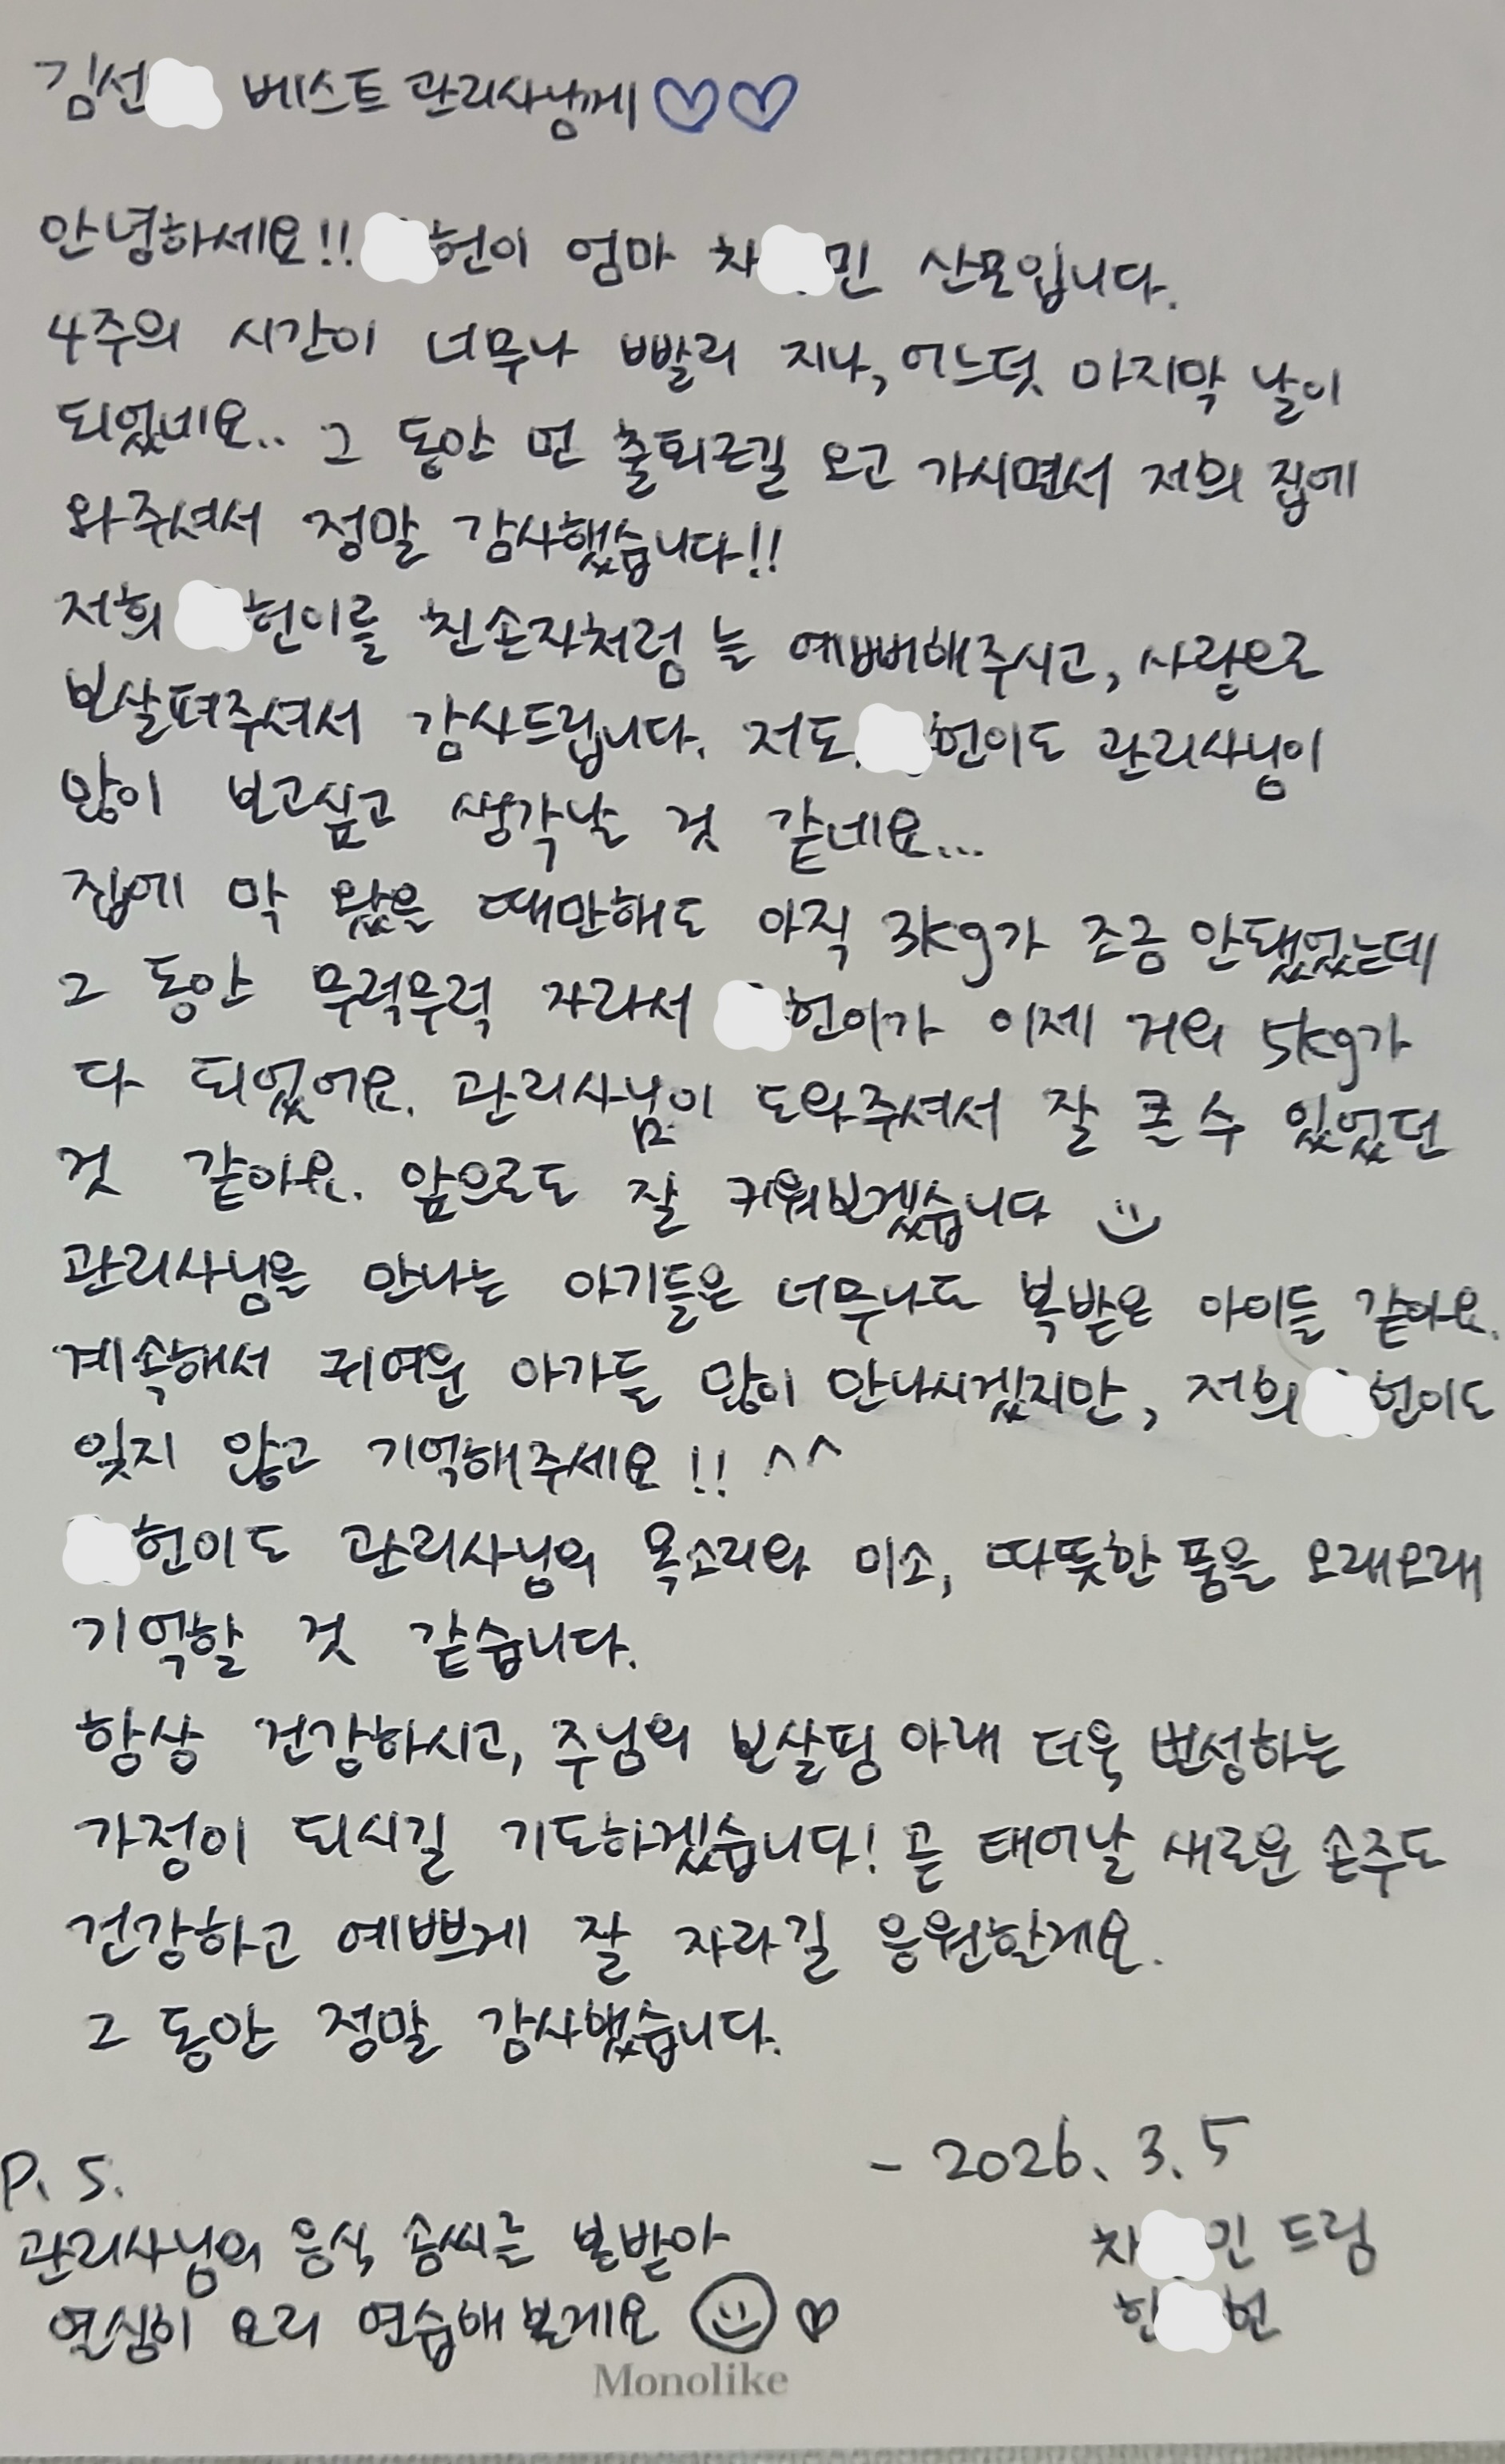 김선 베스트 관리사님께♡♡
안녕하세요!! 헌이 엄마 차 민 산모입니다.
4주의 시간이 너무나 빨리 지나, 어느덧 마지막 날이
되었네요.. 그 동안 먼 출퇴근길 오고 가시면서 저희 집에
와주셔서 정말 감사했습니다!!
저희 헌이를 친손자처럼 늘 예뻐해주시고, 사랑으로
보살펴주셔서 감사드립니다. 저도 헌이도 관리사님이
많이 보고싶고 생각날 것 같네요...
집에 막 왔을 때만해도 아직 3kg가 조금 안됐었는데
그 동안 무럭무럭 자라서 헌이가 이제 거의 5kg가
다 되었어요. 관리사님이 도와주셔서 잘 클 수 있었던
것 같아요. 앞으로도 잘 키워보겠습니다
관리사님을 만나는 아기들은 너무나도 복받은 아이들 같아요.
계속해서 귀여운 아가들 많이 만나시겠지만, 저희 헌이도
잊지 않고 기억해주세요!! ^^
헌이도 관리사님의 목소리와 미소, 따뜻한 품을 오래오래
기억할 것 같습니다.
항상 건강하시고, 주님의 보살핌 아래 더욱 번성하는
가정이 되시길 기도하겠습니다! 곧 태어날 새로운 손주도
건강하고 예쁘게 잘 자라길 응원할게요.
그 동안 정말 감사했습니다.
- 2026. 3. 5
차 민 드림
한 헌
P. S.
관리사님의 음식 솜씨를 본받아
열심히 요리 연습해 볼게요 ♡
Monolike